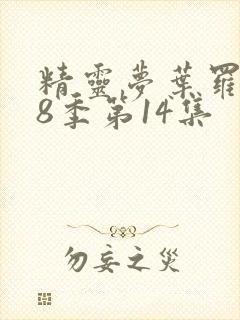 精靈夢葉羅
8季第14集
勿妄之災